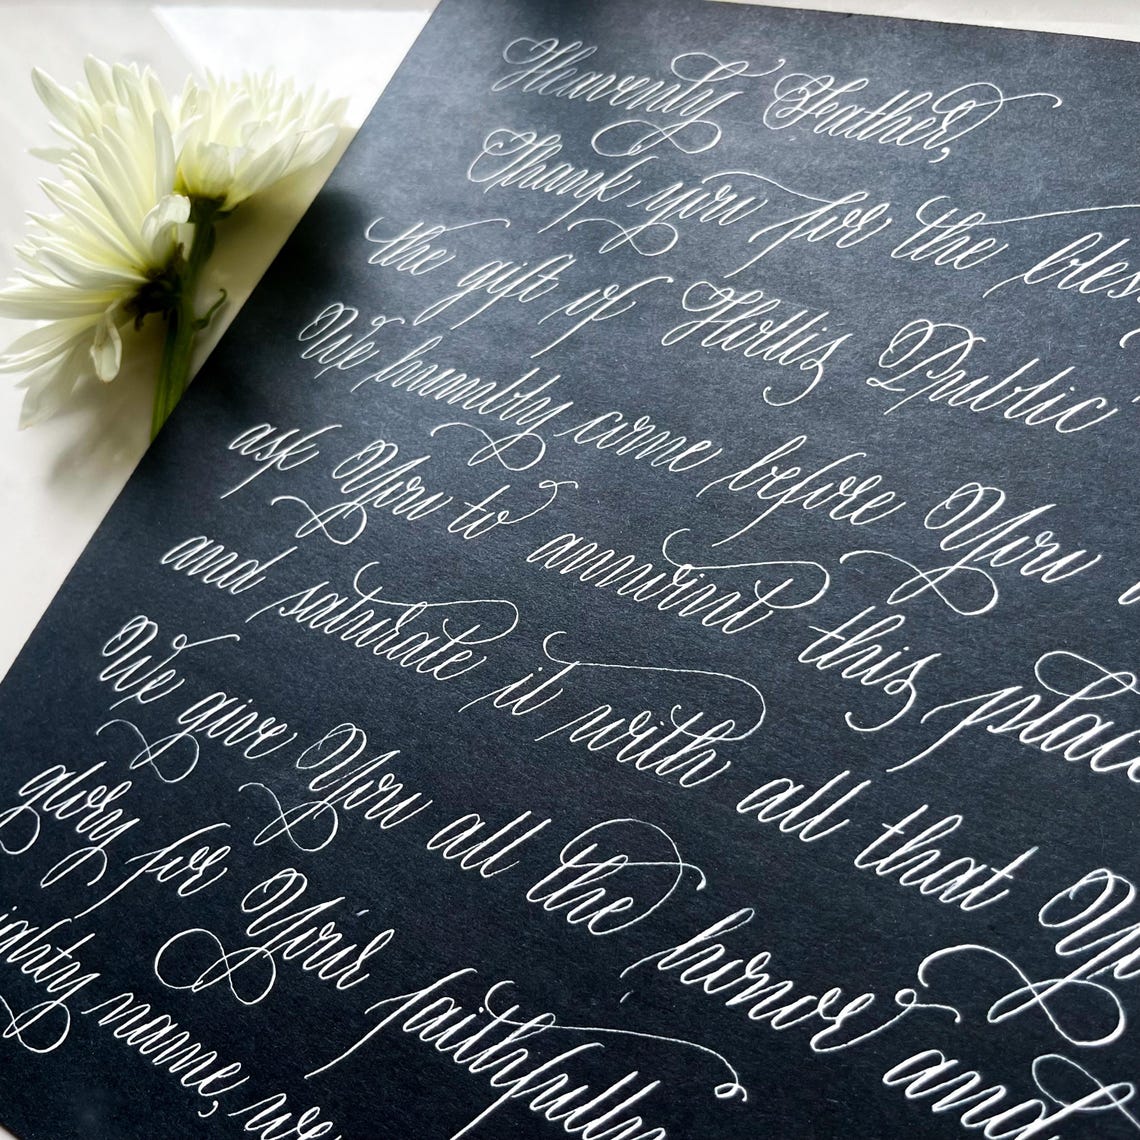 Heavenly Father,
Thank you for the bles
the gift of Hollis Public
We humbly come before You
ask You to annoint this plac
and saturate it with all that Yo
We give You all the honor and
glory for Your faithfulln
ighty name, we